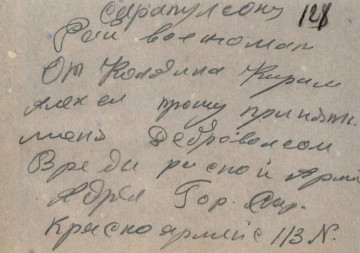 Сарапулсому 121
Рай военомат
От Колядина Кирил
Алексея прошу принять
меня Доброволсом
В ряды расной Арми
Адрес Гор. Сар.
Красноармейс 113 N.